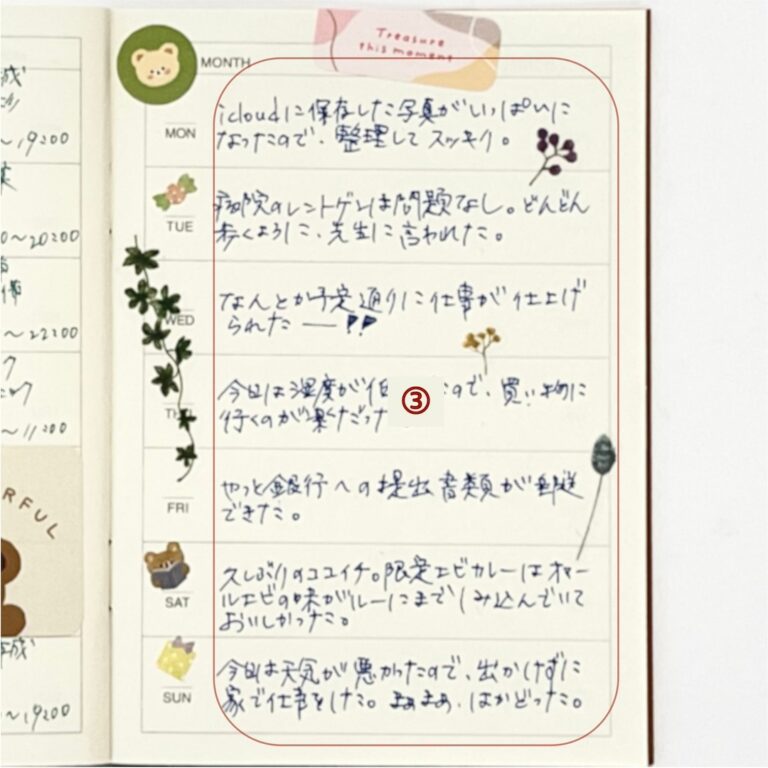 Treasure
this moment
MONTH
MON
icloudに保存した写真がいっぱいに
なったので、整理してスッキリ。
TUE
病院のレントゲンは問題なし。どんどん
歩くように、先生に言われた。
WED
なんとか予定通りに仕事が仕上げ
られたー!!
THU
今日は湿度が低 ③ たので、買い物に
行くのが楽だった
FRI
やっと銀行への提出書類が郵送
できた。
SAT
久しぶりのココイチ。限定エビカレーはオマー
ルエビの味がルーにまでしみ込んでいて
おいしかった。
SUN
今日は天気が悪かったので、出かけずに
家で仕事をした。まぁまぁ、はかどった。
~19:00
~20:00
~22:00
~11:00
RFUL
~19:00